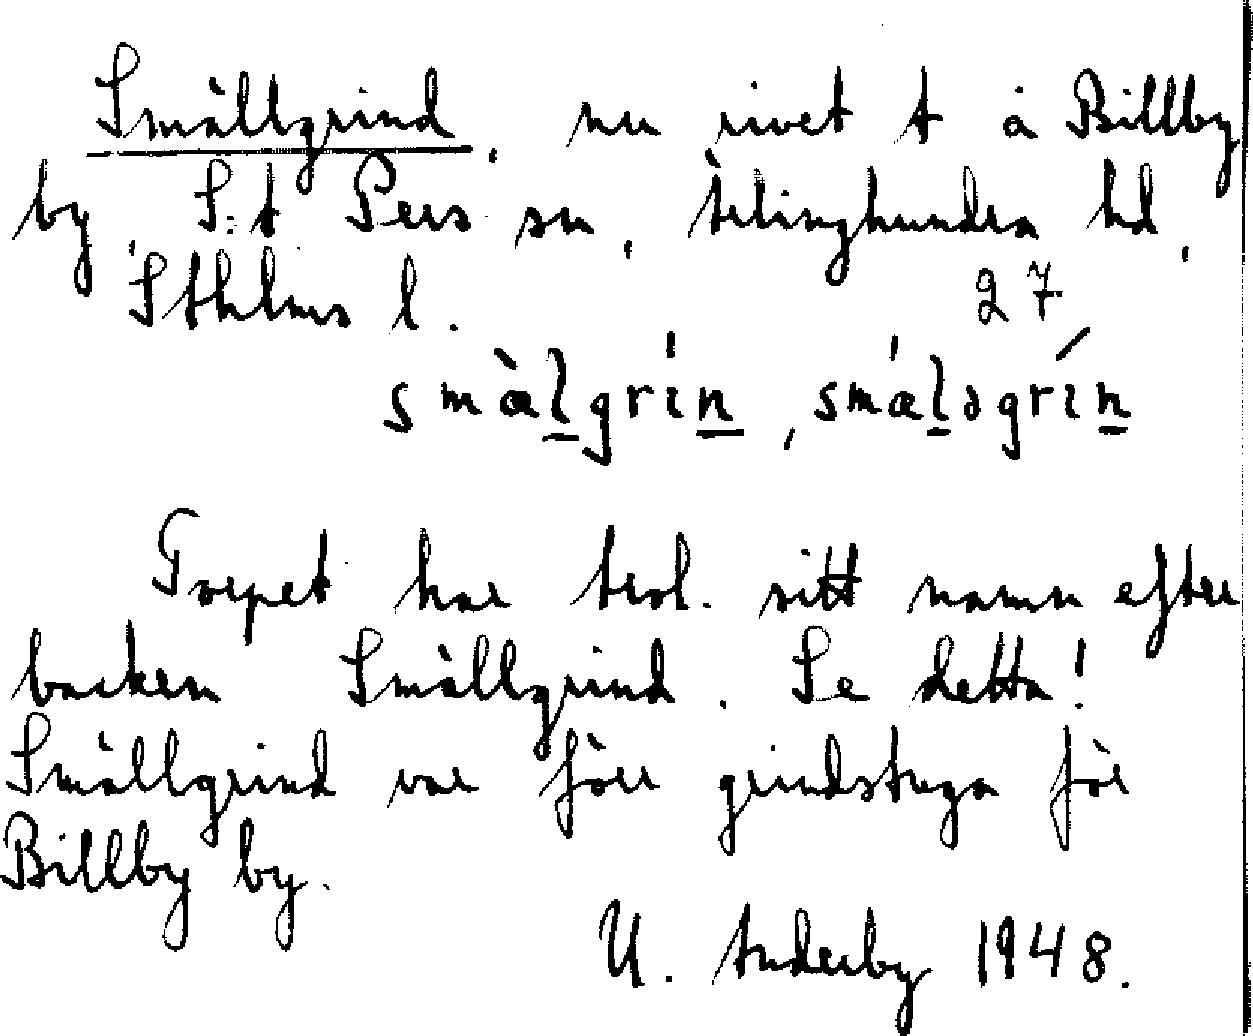 Smällgrind, nu rivet t å Billby
by, S:t Pers sn, Ärlinghundra hd,
Sthlms l. 27
smàl̲grín̲, smál̲əgrín̲
Torpet har trol. sitt namn efter
backen Smällgrind. Se detta!
Smällgrind var förr grindstuga för
Billby by.
U. 1948.